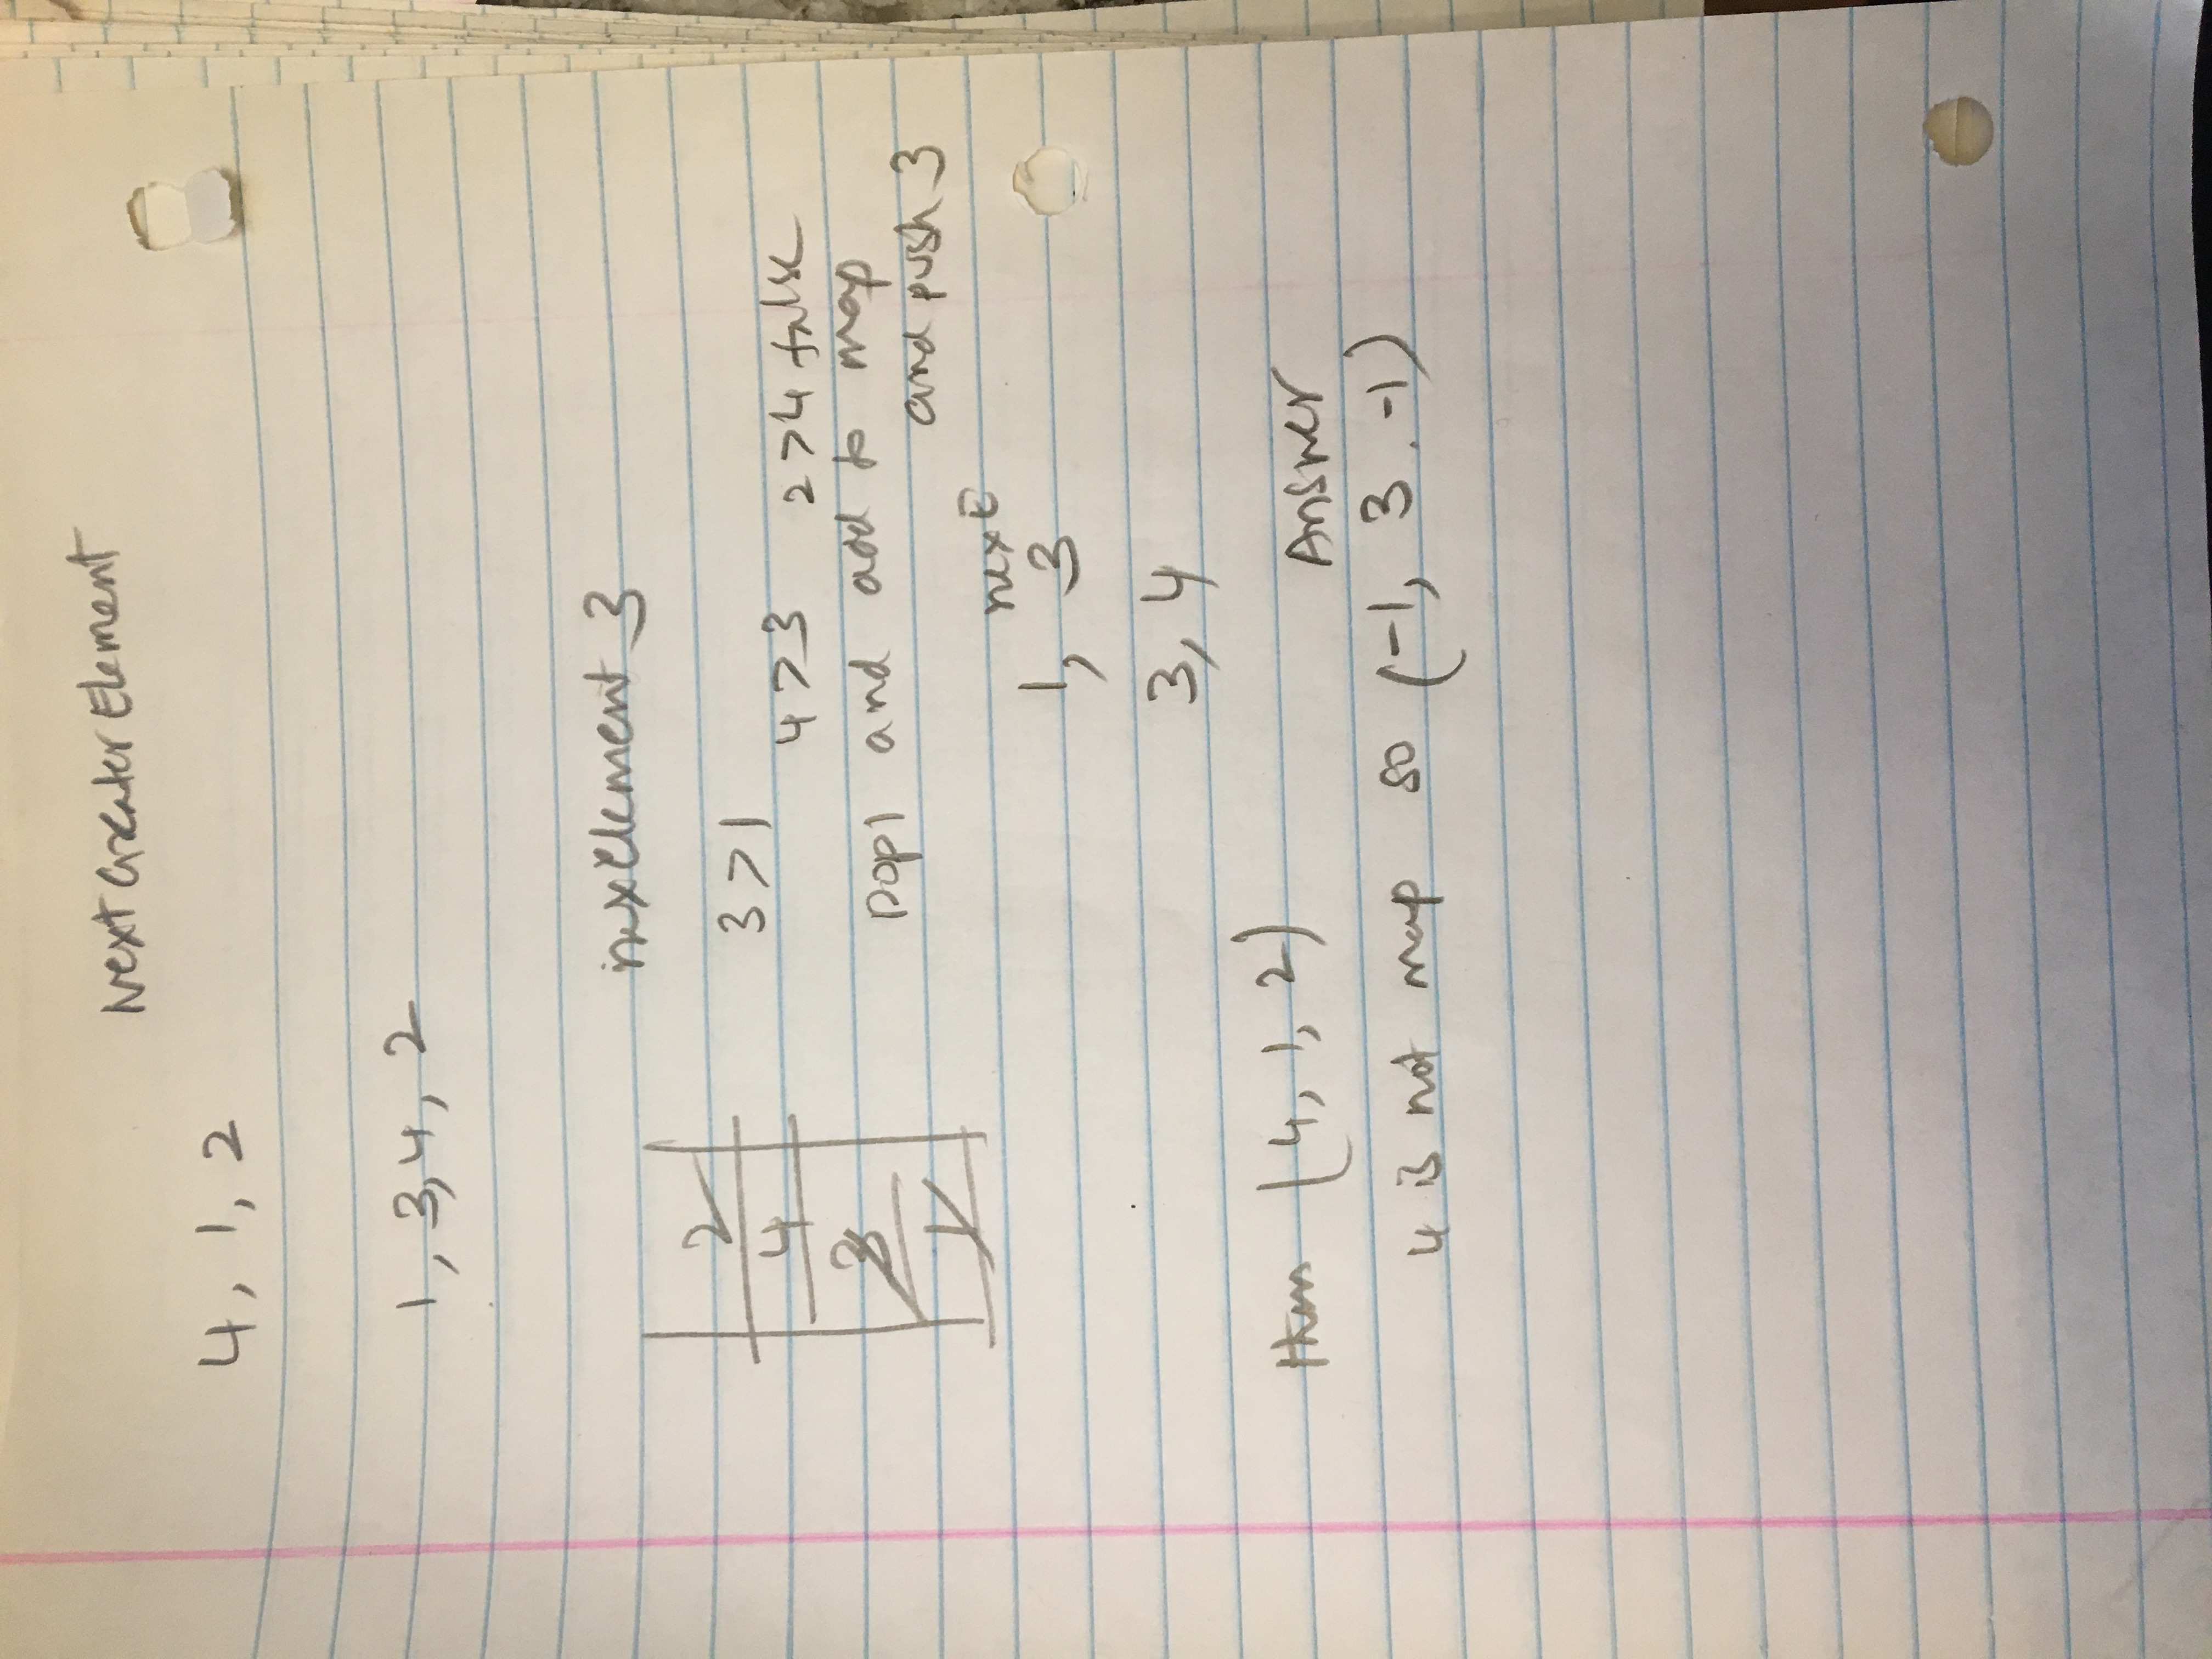 Next Greater Element
4, 1, 2
1, 3, 4, 2
nexelement 3
2
4
3
1
3 > 1
4 > 3 2 > 4 false
pop 1 and add to map
and push 3
next
1, 3
3, 4
then (4, 1, 2)
Answer
4 is not map so (-1, 3, -1)